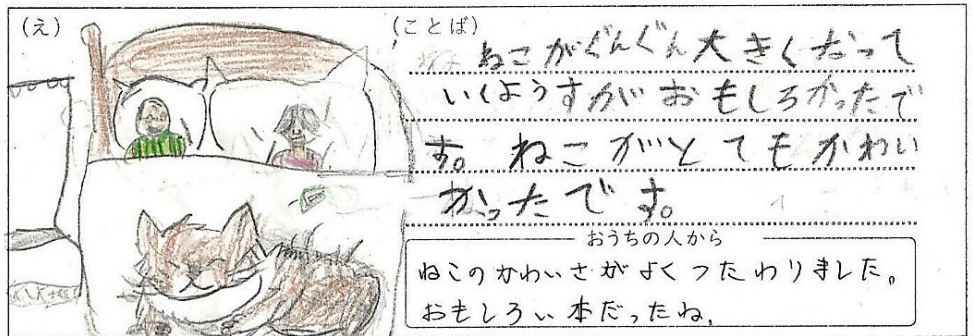 (え)
(ことば)
ねこがぐんぐん大きくなって
いくようすがおもしろかったで
す。ねこがとてもかわい
かったです。
おうちの人から
ねこのかわいさがよくつたわりました。
おもしろい本だったね。